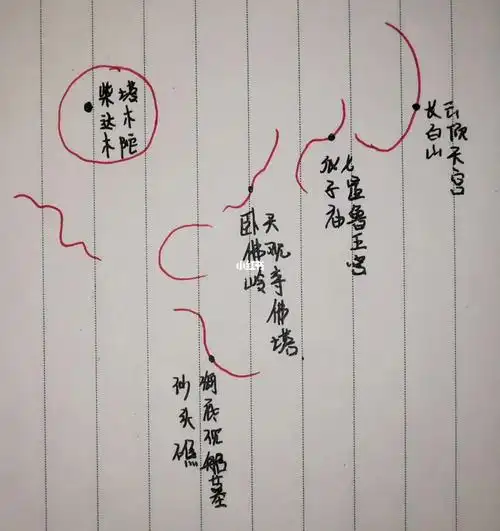 柴达木
塔木陀
长白山
云顶天宫
瓜子庙
七星鲁王宫
卧佛岭
天观寺佛塔
沙头礁
海底沉船墓
小红书